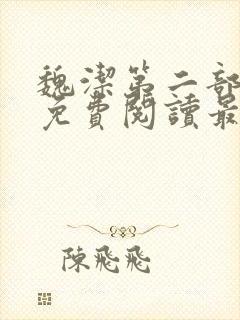 魏潔第二部
免費閱讀最
陳飛飛